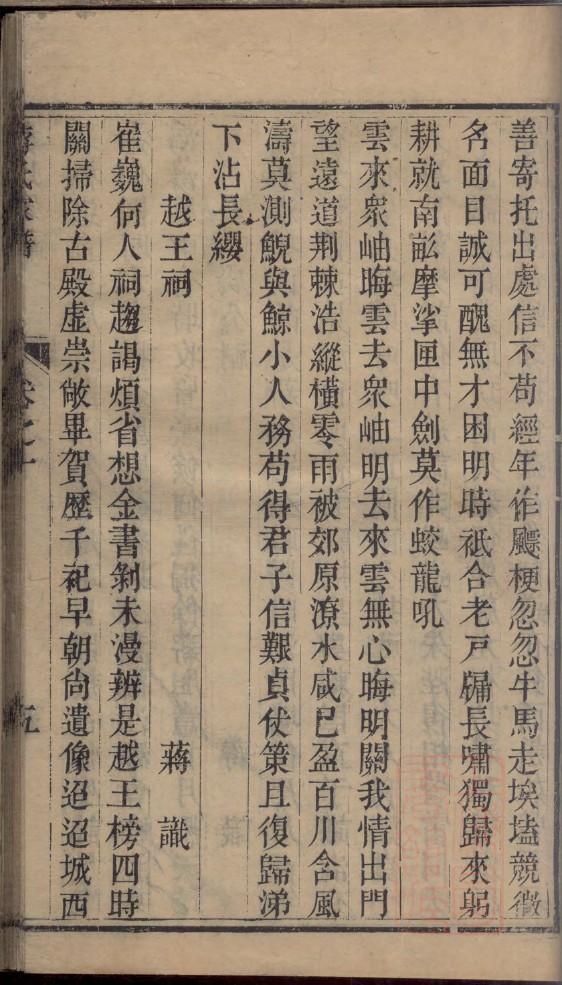 善寄托出處信不苟經年作飃梗忽忽牛馬走埃壒競徵
名面目誠可醜無才困明時祗合老戸牖長嘯獨歸來躬
耕就南畝摩挲匣中劍莫作蛟龍吼
雲來衆岫晦雲去衆岫明去來雲無心晦明關我情出門
望遠道荆棘浩縱橫零雨被郊原潦水咸已盈百川含風
濤莫測鯢與鯨小人務苟得君子信艱貞伏策且復歸涕
下沾長纓
越王祠 蔣識
崔巍何人祠趨謁煩省想金書剝未漫辨是越王榜四時
關掃除古殿虛崇敞畢賀歷千祀早朝尙遺像迢迢城西
卷之十
五